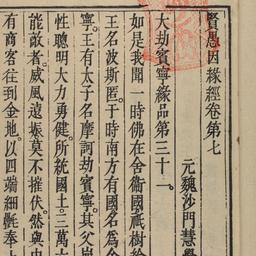 賢愚因緣經卷第七
元魏沙門慧
大劫賓寧緣品第三十一
如是我聞一時佛在舍衞國祇樹給
王名波斯匿。于時南方有國名為金
寧。王有太子名摩訶劫賓寧。其父崩
性聰明大力勇健。所統國土。三萬六
能敵者。威風遠振莫不摧伏。然與中
有商客往到金地。以四端細氎奉上